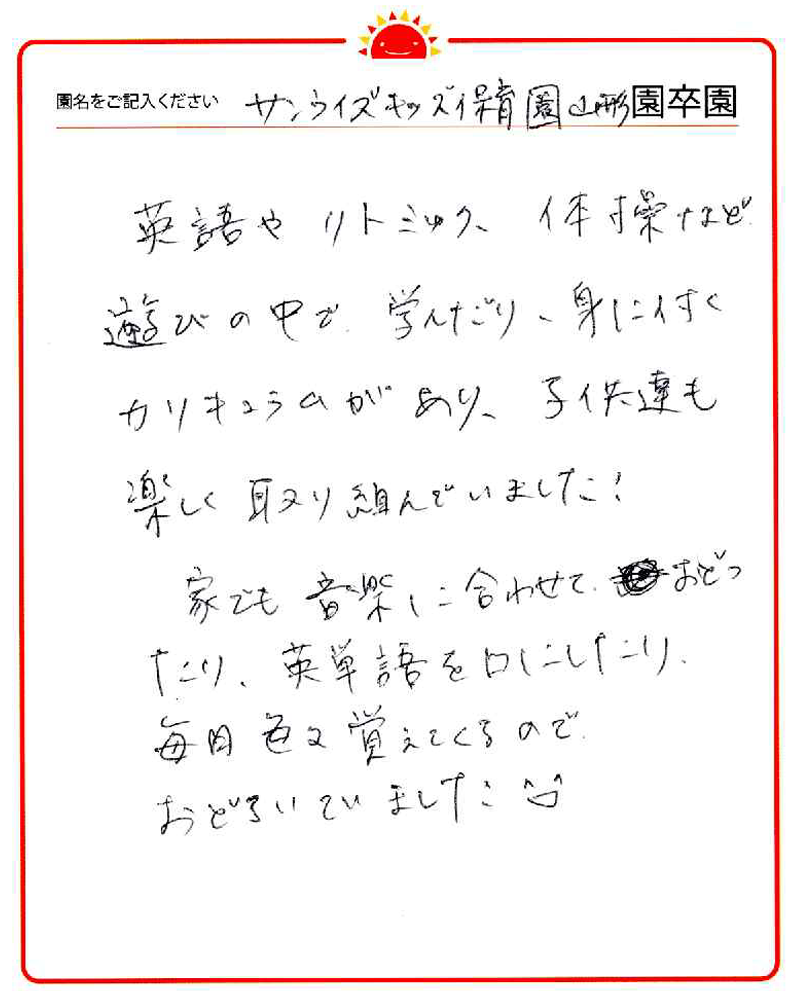 園名をご記入ください サンライズキッズ保育園山形園卒園
英語や リトミック、体操など
遊びの中で、学んだり、身に付く
カリキュラムがあり、子供達も
楽しく取り組んでいました!
家でも音楽に合わせて、おどっ
たり、英単語を口にしたり、
毎日色々覚えてくるので、
おどろいていました